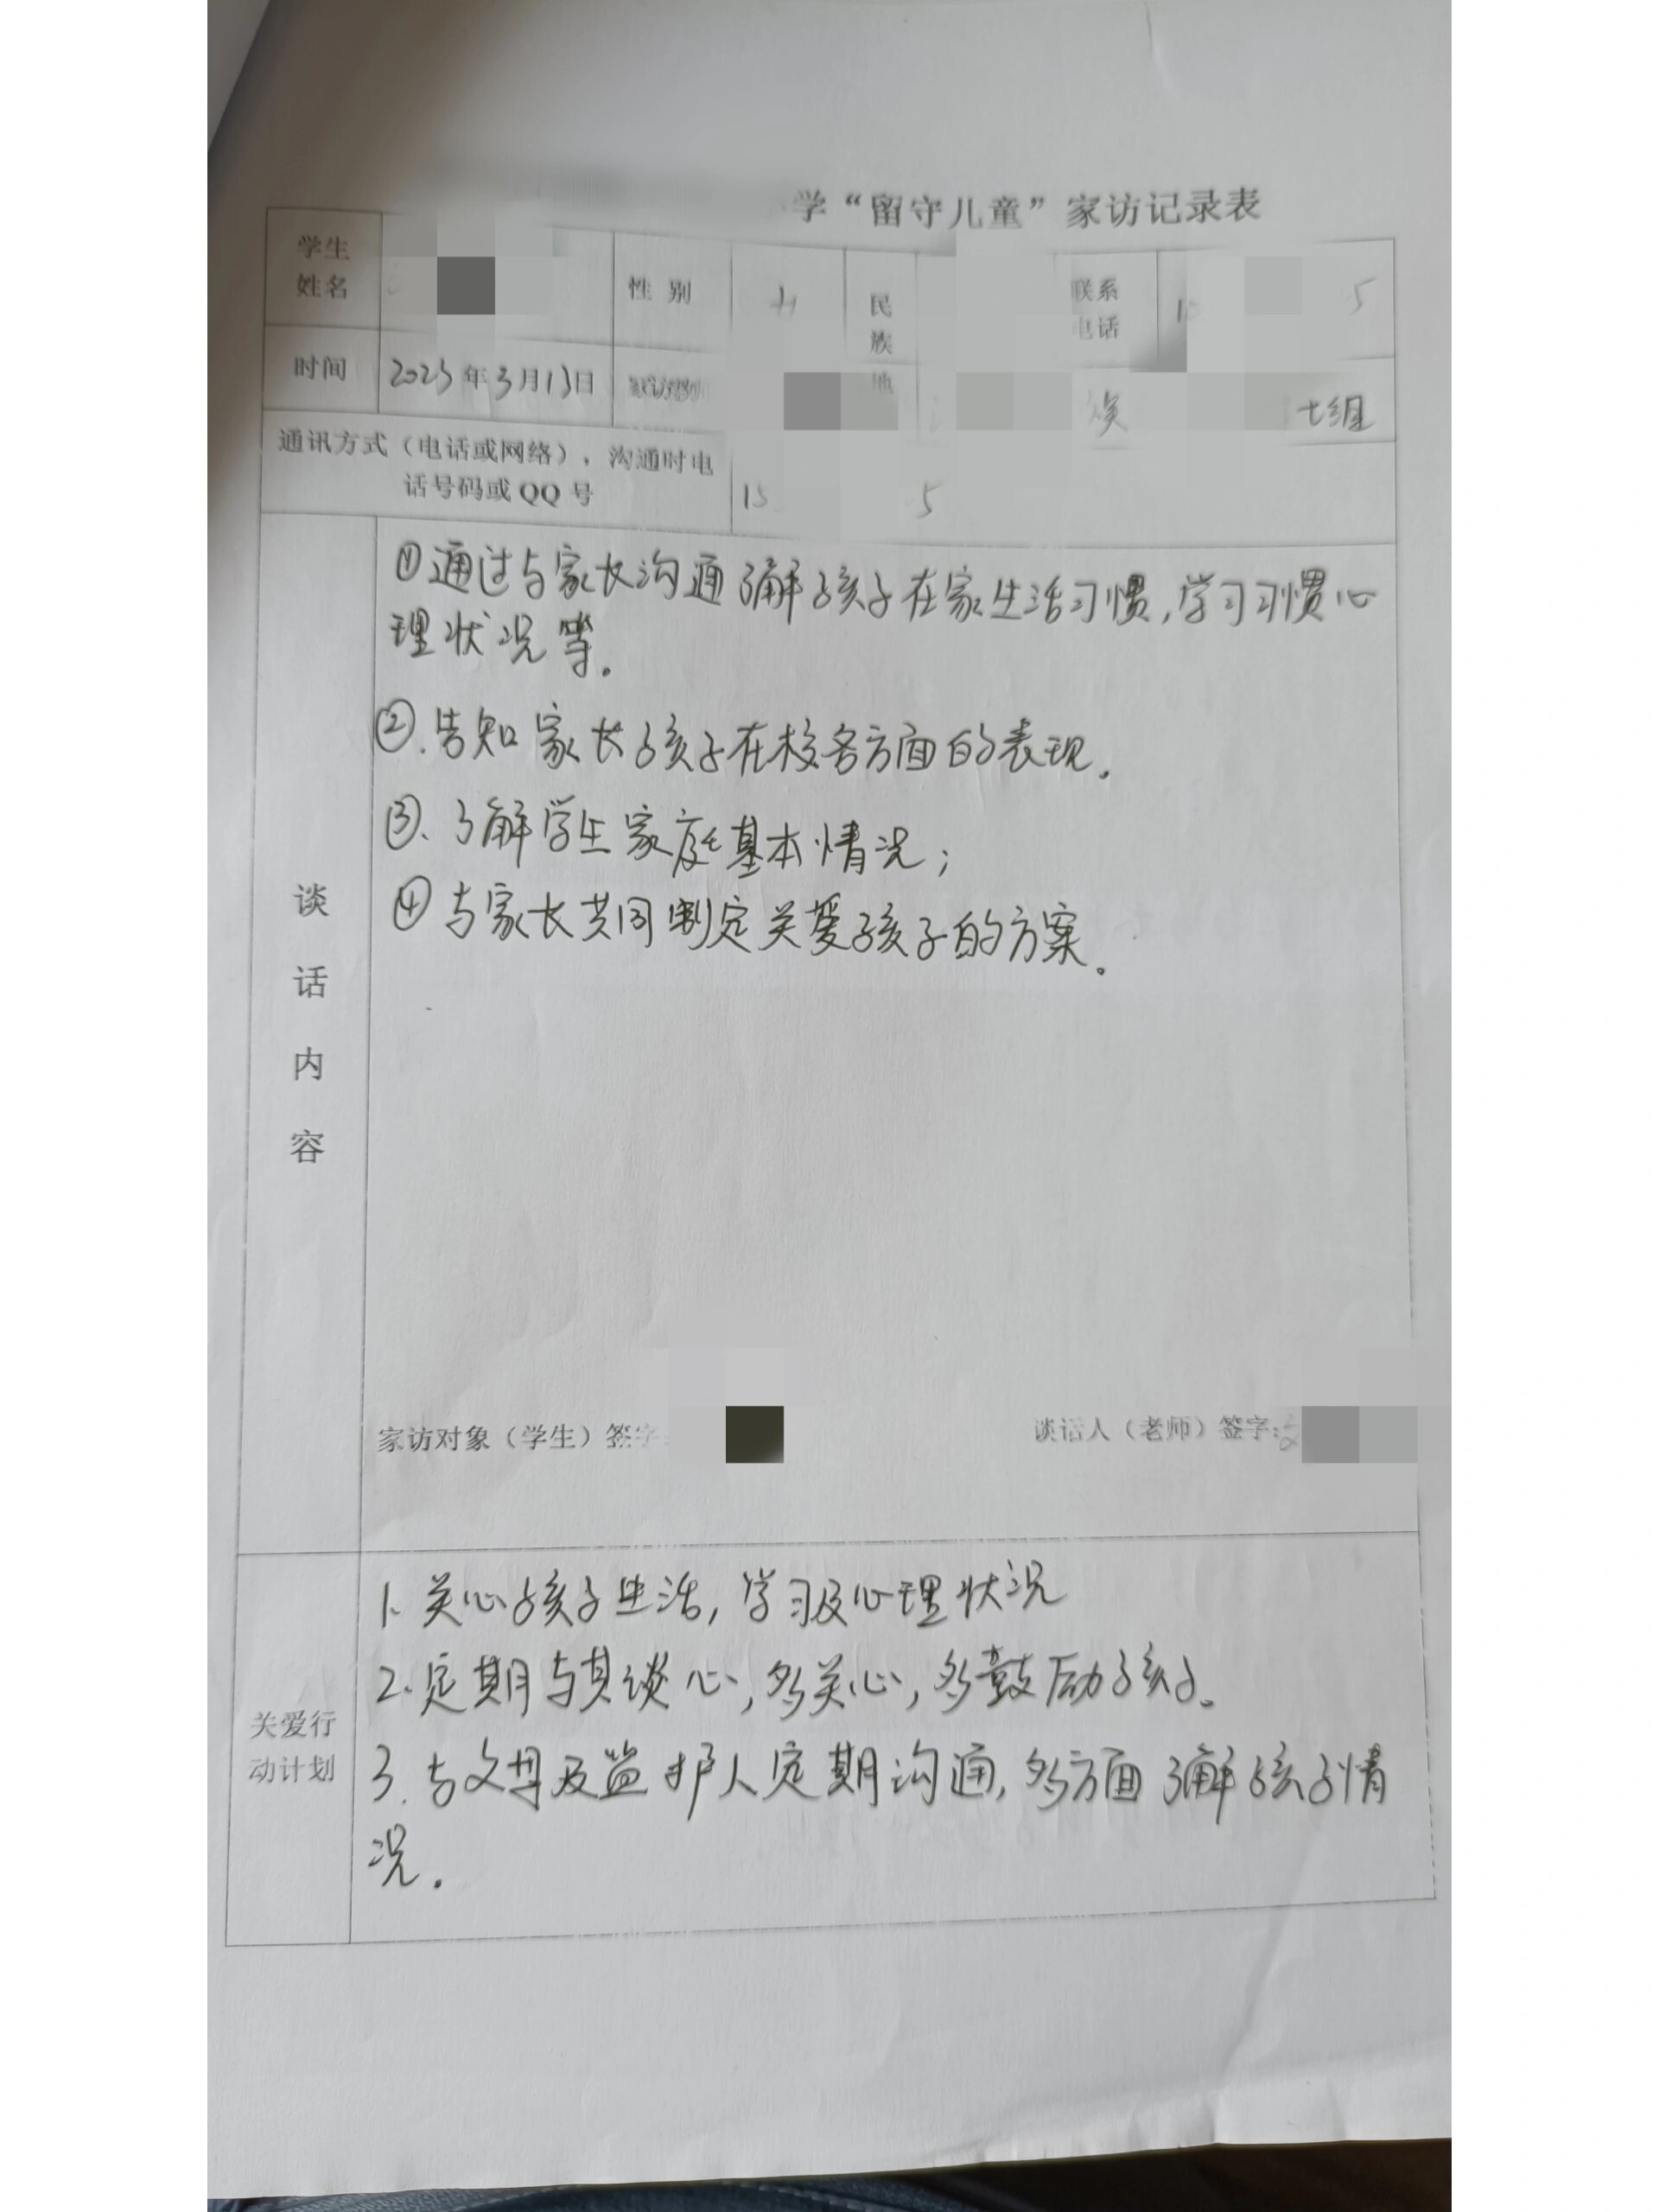 学“留守儿童”家访记录表
学生姓名 性别 民族 联系电话 5
时间 2023年3月13日 家访教师 地 七组
通讯方式（电话或网络），沟通时电
话号码或QQ号 15 5
谈话内容
①通过与家长沟通了解孩子在家生活习惯，学习习惯心
理状况等。
②.告知家长孩子在校各方面的表现。
③、了解学生家庭基本情况；
④与家长共同制定关爱孩子的方案。
家访对象（学生）签字： 谈话人（老师）签字：
关爱行动计划
1.关心孩子生活，学习及心理状况
2.定期与其谈心，多关心，多鼓励孩子。
3.与父母及监护人定期沟通，多方面了解孩子情
况。